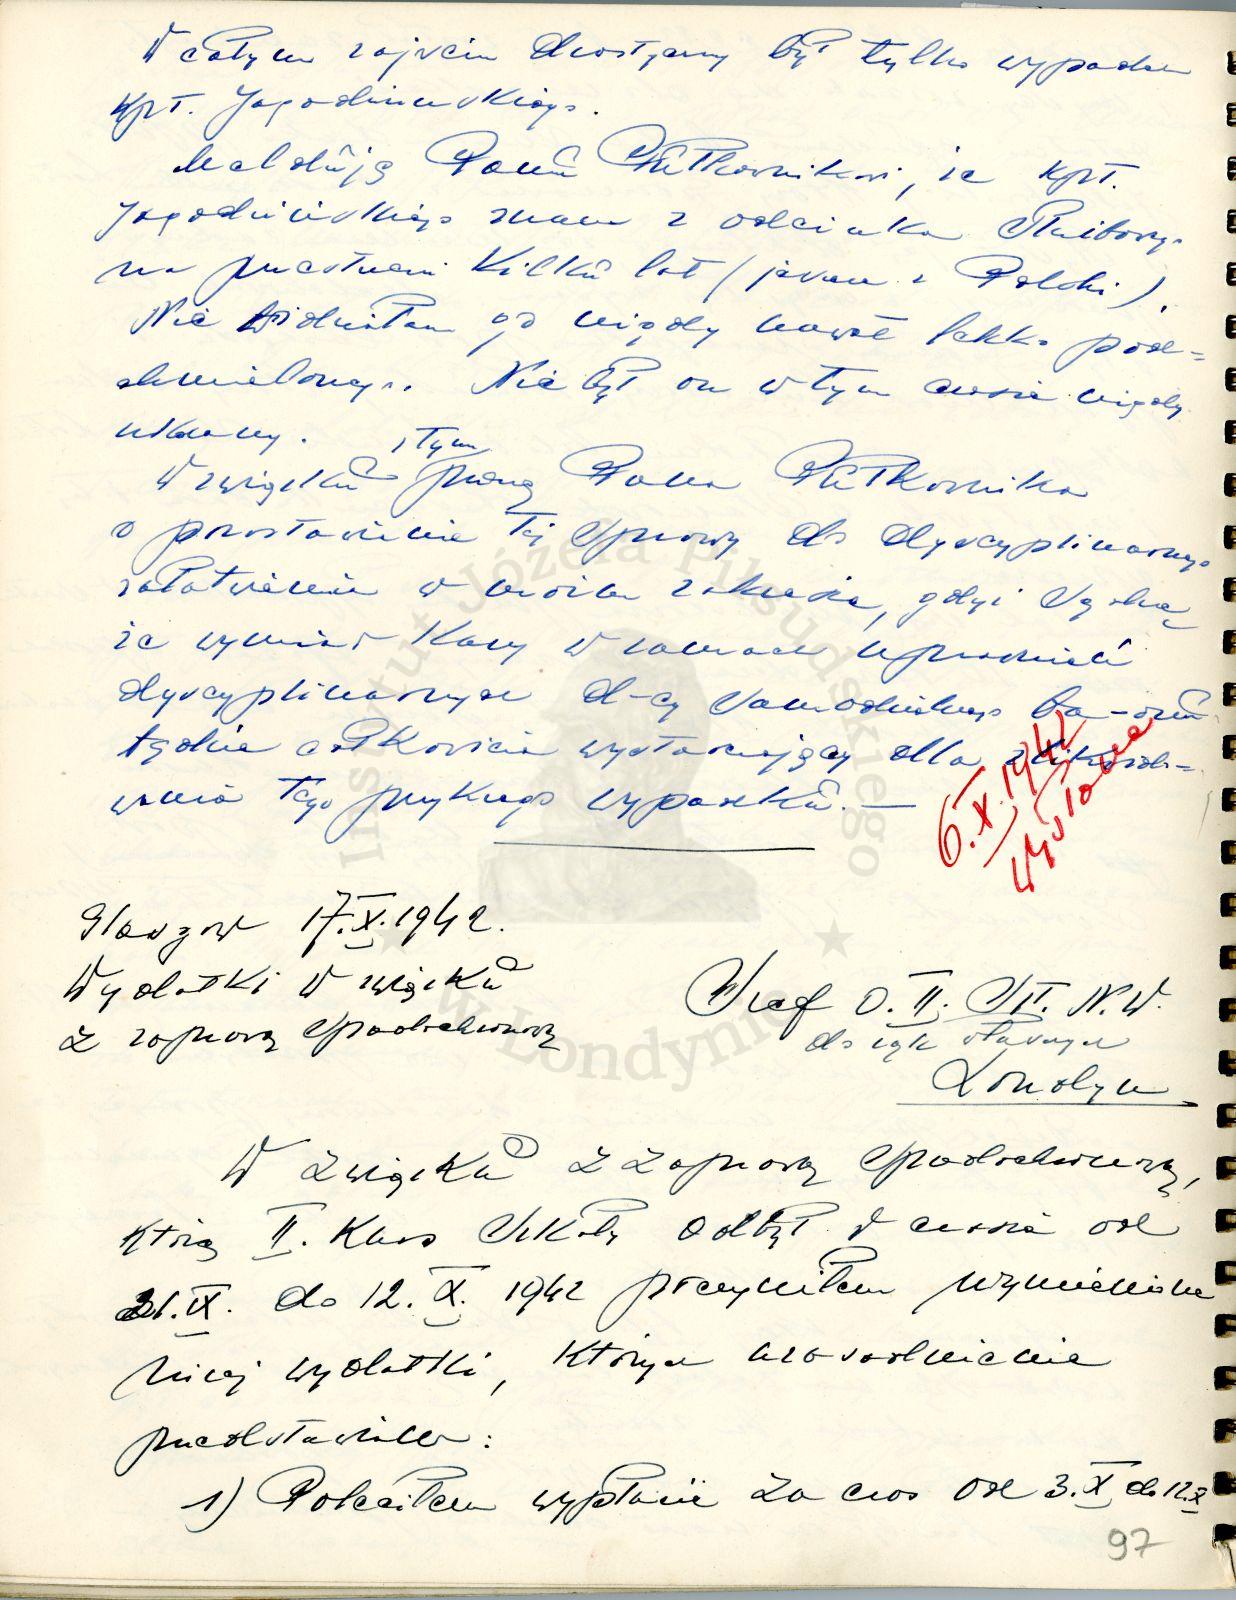 W całym zajściu drastyczny był tylko wypadek
kpt. Jagodzińskiego.
Melduję Panu Pułkownikowi, że kpt.
Jagodzińskiego znam z odcinka służbowego
na przestrzeni kilku lat (jeszcze z Polski).
Nie widziałem go nigdy nawet lekko pod=
chmielonego. Nie był on w tym czasie nigdy
karany.
W związku z tym proszę Pana Pułkownika
o pozostawienie tej sprawy do dyscyplinarnego
załatwienia w moim zakresie, gdyż sądzę,
że wymiar kary w ramach uprawnień
dyscyplinarnych d-cy samodzielnego
będzie całkowicie wystarczający dla zlikwido=
wania tego przykrego wypadku. —
6.X.1942
wysłane
Glasgow 17.X.1942.
Wydatki w związku
z zaprawą spadochronową
Szef O.II. Szt. N.W.
do rąk własnych
Londyn
W związku z zaprawą spadochronową,
którą II. Kurs Szkoły odbył w czasie od
21.IX. do 12.X. 1942 poczyniłem wymienione
niżej wydatki, których uzasadnienie
przedstawiam:
1) Poleciłem wypłacić za czas od 3.X do 12.X
97
Instytut Józefa Piłsudskiego
w Londynie